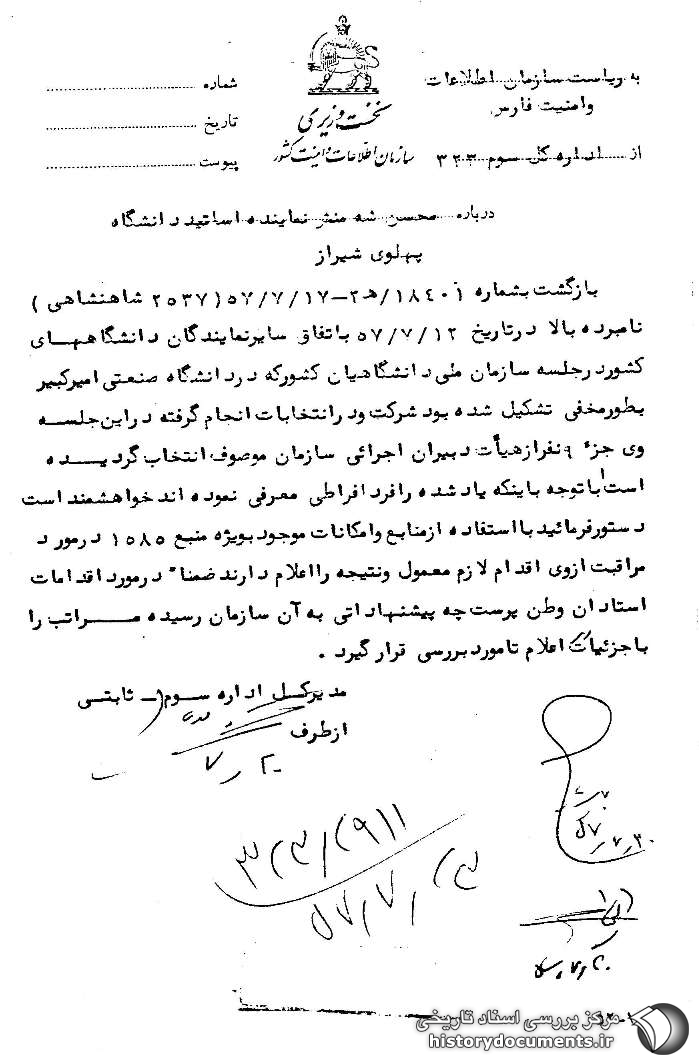 به ریاست سازمان اطلاعات
و امنیت فارس
از اداره کل سوم ۳۲۳
نخست وزیری
سازمان اطلاعات و امنیت کشور
شماره
تاریخ
پیوست
درباره محسن شه منش نماینده اساتید دانشگاه
پهلوی شیراز
بازگشت بشماره ۱۸۴۰۱/ه۲-۵۷/۷/۱۷ (۲۵۳۷ شاهنشاهی)
نامبرده بالا در تاریخ ۵۷/۷/۱۲ باتفاق سایر نمایندگان دانشگاههای
کشور در جلسه سازمان ملی دانشگاهیان کشور که در دانشگاه صنعتی امیرکبیر
بطور مخفی تشکیل شده بود شرکت و در انتخابات انجام گرفته در این جلسه
وی جزء ۹ نفر از هیأت دبیران اجرائی سازمان موصوف انتخاب گردیده
است با توجه باینکه یاد شده را فرد افراطی معرفی نموده اند خواهشمند است
دستور فرمائید با استفاده از منابع و امکانات موجود بویژه منبع ۱۵۸۵ در مورد
مراقبت از وی اقدام لازم معمول و نتیجه را اعلام دارند ضمناً در مورد اقدامات
استادان وطن پرست چه پیشنهاداتی به آن سازمان رسیده مراتب را
با جزئیات اعلام تا مورد بررسی قرار گیرد .
مدیرکل اداره سوم - ثابتی
از طرف
۳۲۳/۲۹۱۱
۵۷/۷/۲۳
مرکز بررسی اسناد تاریخی
historydocuments.ir